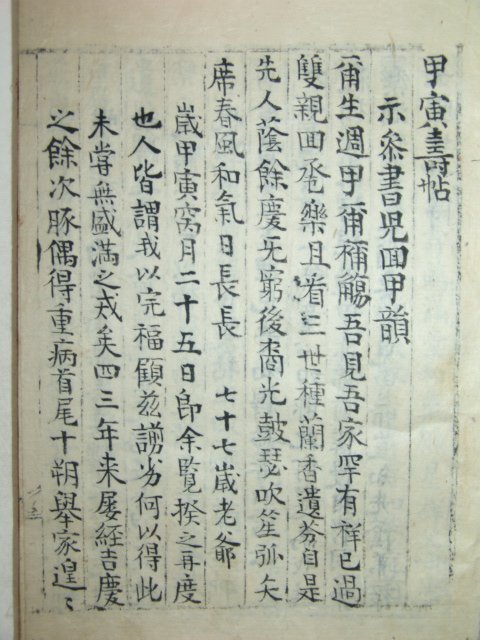 甲寅壽帖
示叅書児回甲韻
甭生週甲甭稱觴吾見吾家罕有祥已過
雙親回卺樂且看三世種蘭香遺芬自是
先人蔭餘慶旡窮後裔光鼓瑟吹笙弧矢
席春風和氣日長長 七十七歲老爺
歲甲寅窝月二十五日卽余覧揆之再度
也人皆謂我以完福顧玆謭劣何以得此
未嘗無盛滿之戒矣四三年来屡經吉慶
之餘次豚偶得重病首尾十朔擧家遑〻